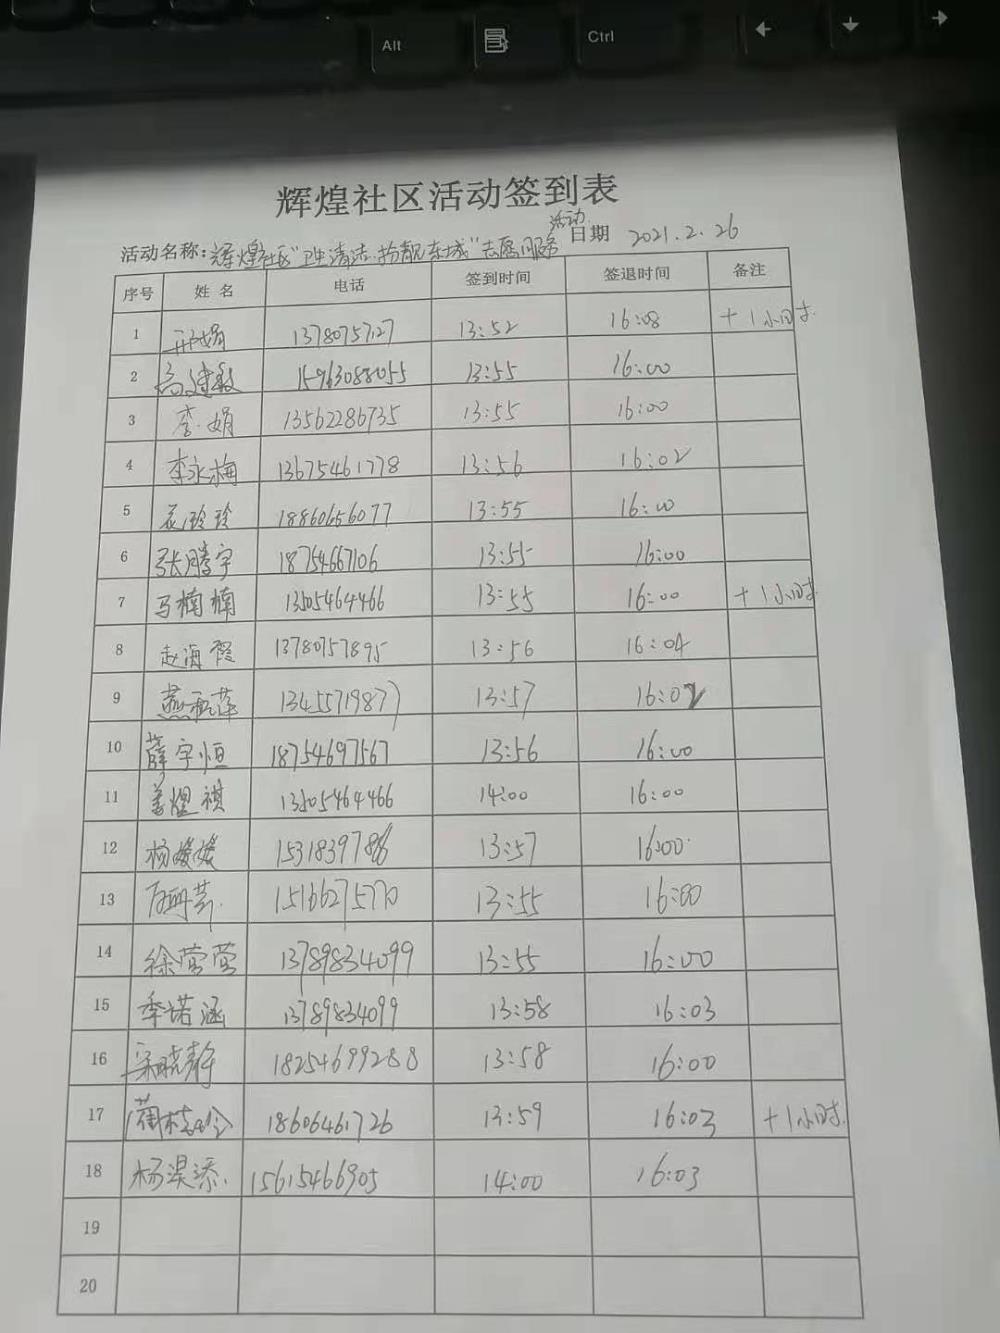 Alt
Ctrl
辉煌社区活动签到表
活动名称：辉煌社区"卫生清洁.扮靓东城"志愿服务活动 日期 2021.2.26
序号 姓名 电话 签到时间 签退时间 备注
1 娟 13780757127 13:52 16:08 +1小时
2 高建敏 15963088055 13:55 16:00
3 李娟 13562286735 13:55 16:00
4 李永梅 13675461778 13:56 16:02
5 玲玲 18860656077 13:55 16:00
6 张腾宇 18754667106 13:55 16:00
7 马楠楠 13505464466 13:55 16:00 +1小时
8 赵海霞 13780757895 13:56 16:04
9 燕 萍 13455719877 13:57 16:02
10 薛宇恒 18754697567 13:56 16:00
11 姜煜祺 13505464466 14:00 16:00
12 杨媛媛 13:57 16:00
13 15166275770 13:55 16:00
14 徐莹莹 13789834099 13:55 16:00
15 季诺涵 13789834099 13:58 16:03
16 梁晓静 18254699288 13:58 16:00
17 18606461726 13:59 16:03 +1小时
18 杨淏添 15615466905 14:00 16:03
19
20